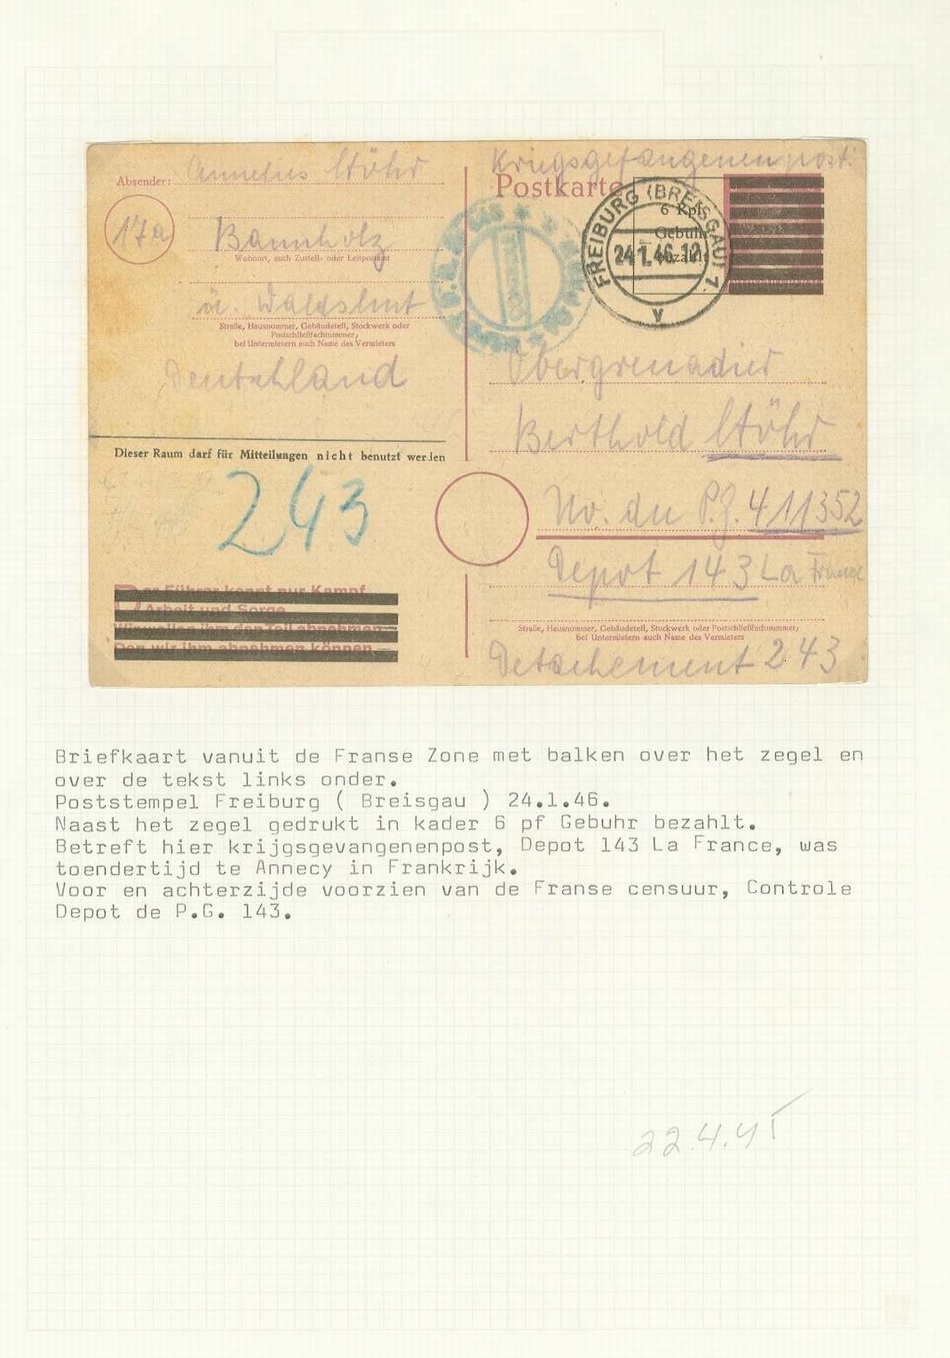 Absender:
Stöhr
17a
Bannholz
Wohnort, auch Zustell- oder Leitpostamt
ü. Waldshut
Straße, Hausnummer, Gebäudeteil, Stockwerk oder
Postschließfachnummer;
bei Untermietern auch Name des Vermieters
Deutschland
Dieser Raum darf für Mitteilungen nicht benutzt werden
243
Der Führer kennt nur Kampf
Arbeit und Sorge
Wir wollen ihm den Teil abnehmen
Den wir ihm abnehmen können
Kriegsgefangenenpost.
Postkarte
6 Rpf
Gebühr
bezahlt
FREIBURG (BREISGAU) 1
24.1.46.12
v
Obergrenadier
Berthold Stöhr
No. du P.G. 411352
Depot 143 La France
Straße, Hausnummer, Gebäudeteil, Stockwerk oder Postschließfachnummer;
bei Untermietern auch Name des Vermieters
Detachement 243
Briefkaart vanuit de Franse Zone met balken over het zegel en
over de tekst links onder.
Poststempel Freiburg ( Breisgau ) 24.1.46.
Naast het zegel gedrukt in kader 6 pf Gebuhr bezahlt.
Betreft hier krijgsgevangenenpost, Depot 143 La France, was
toendertijd te Annecy in Frankrijk.
Voor en achterzijde voorzien van de Franse censuur, Controle
Depot de P.G. 143.
22.4.45